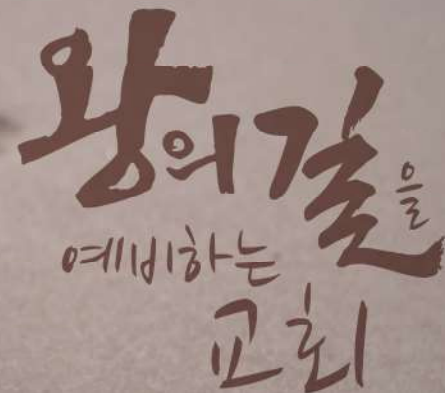 왕의 길을
예비하는
교회